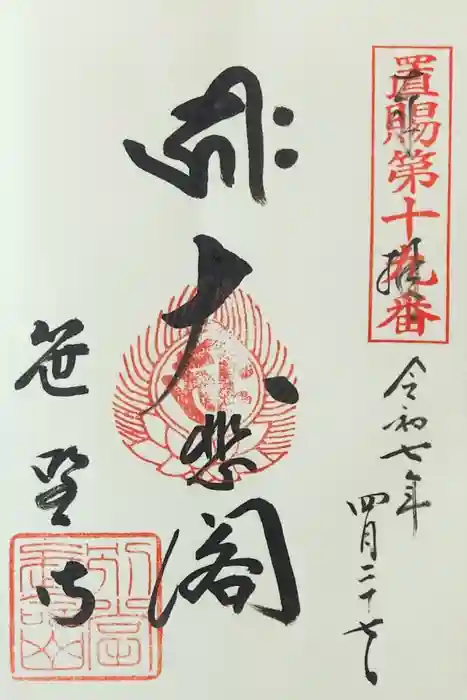 置賜第十九番
奉拝
令和七年
四月二十七日
大悲閣
笹野寺